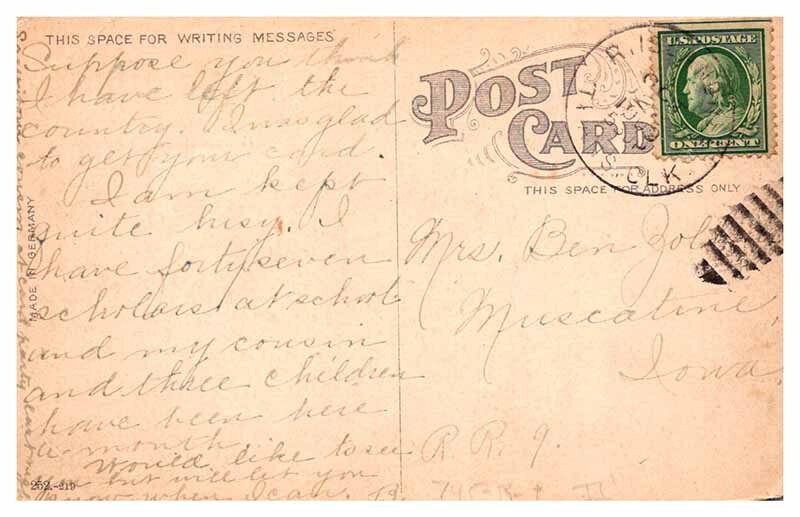 THIS SPACE FOR WRITING MESSAGES
Suppose you think
I have left the
country. I was glad
to get your card.
I am kept
quite busy. I
have forty seven
scholars at school
and my cousin
and three children
have been here
a month.
Would like to see
you but will let you
know when I can. B.
MADE IN GERMANY
252.-219
POST
CARD
THIS SPACE FOR ADDRESS ONLY
U.S. POSTAGE
ONE CENT
CLK
Mrs. Ben
Muscatine,
Iowa.
R. R.